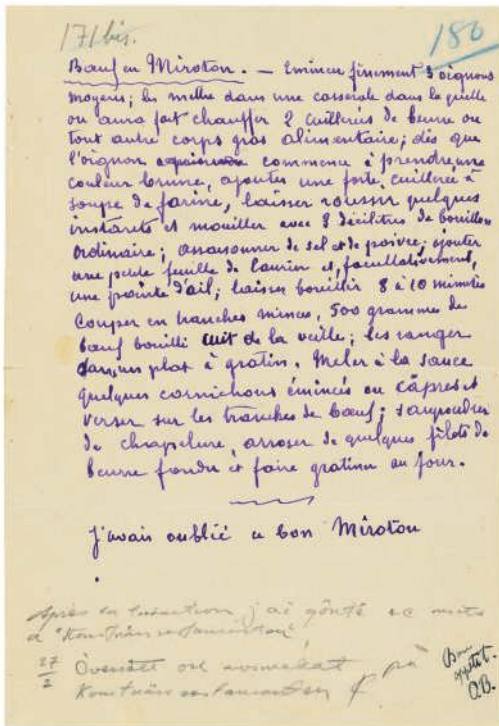 171 bis.
180
Bœuf en Miroton. — Emincer finement 3 oignons
moyens; les mettre dans une casserole dans laquelle
on aura fait chauffer 2 cuillerées de beurre ou
tout autre corps gras alimentaire; dès que
l'oignon commence à prendre une
couleur brune, ajoutez une forte cuillerée à
soupe de farine, laisser roussir quelques
instants et mouiller avec 8 décilitres de bouillon
ordinaire; assaisonner de sel et de poivre; ajouter
une petite feuille de laurier et, facultativement,
une pointe d'ail; laisser bouillir 8 à 10 minutes
Couper en tranches minces, 500 grammes de
bœuf bouilli cuit de la veille; les ranger
dans un plat à gratin. Mêler à la sauce
quelques cornichons émincés ou câpres et
verser sur les tranches de bœuf; saupoudrer
de chapelure, arroser de quelques filets de
beurre fondu et faire gratiner au four.
j'avais oublié ce bon Miroton
Après j'ai goûté ce mets
a "Konstnärsrestauranten"
27/2 Översatt och avsmakat på
Konstnärsrestauranten
Bon
appétit.